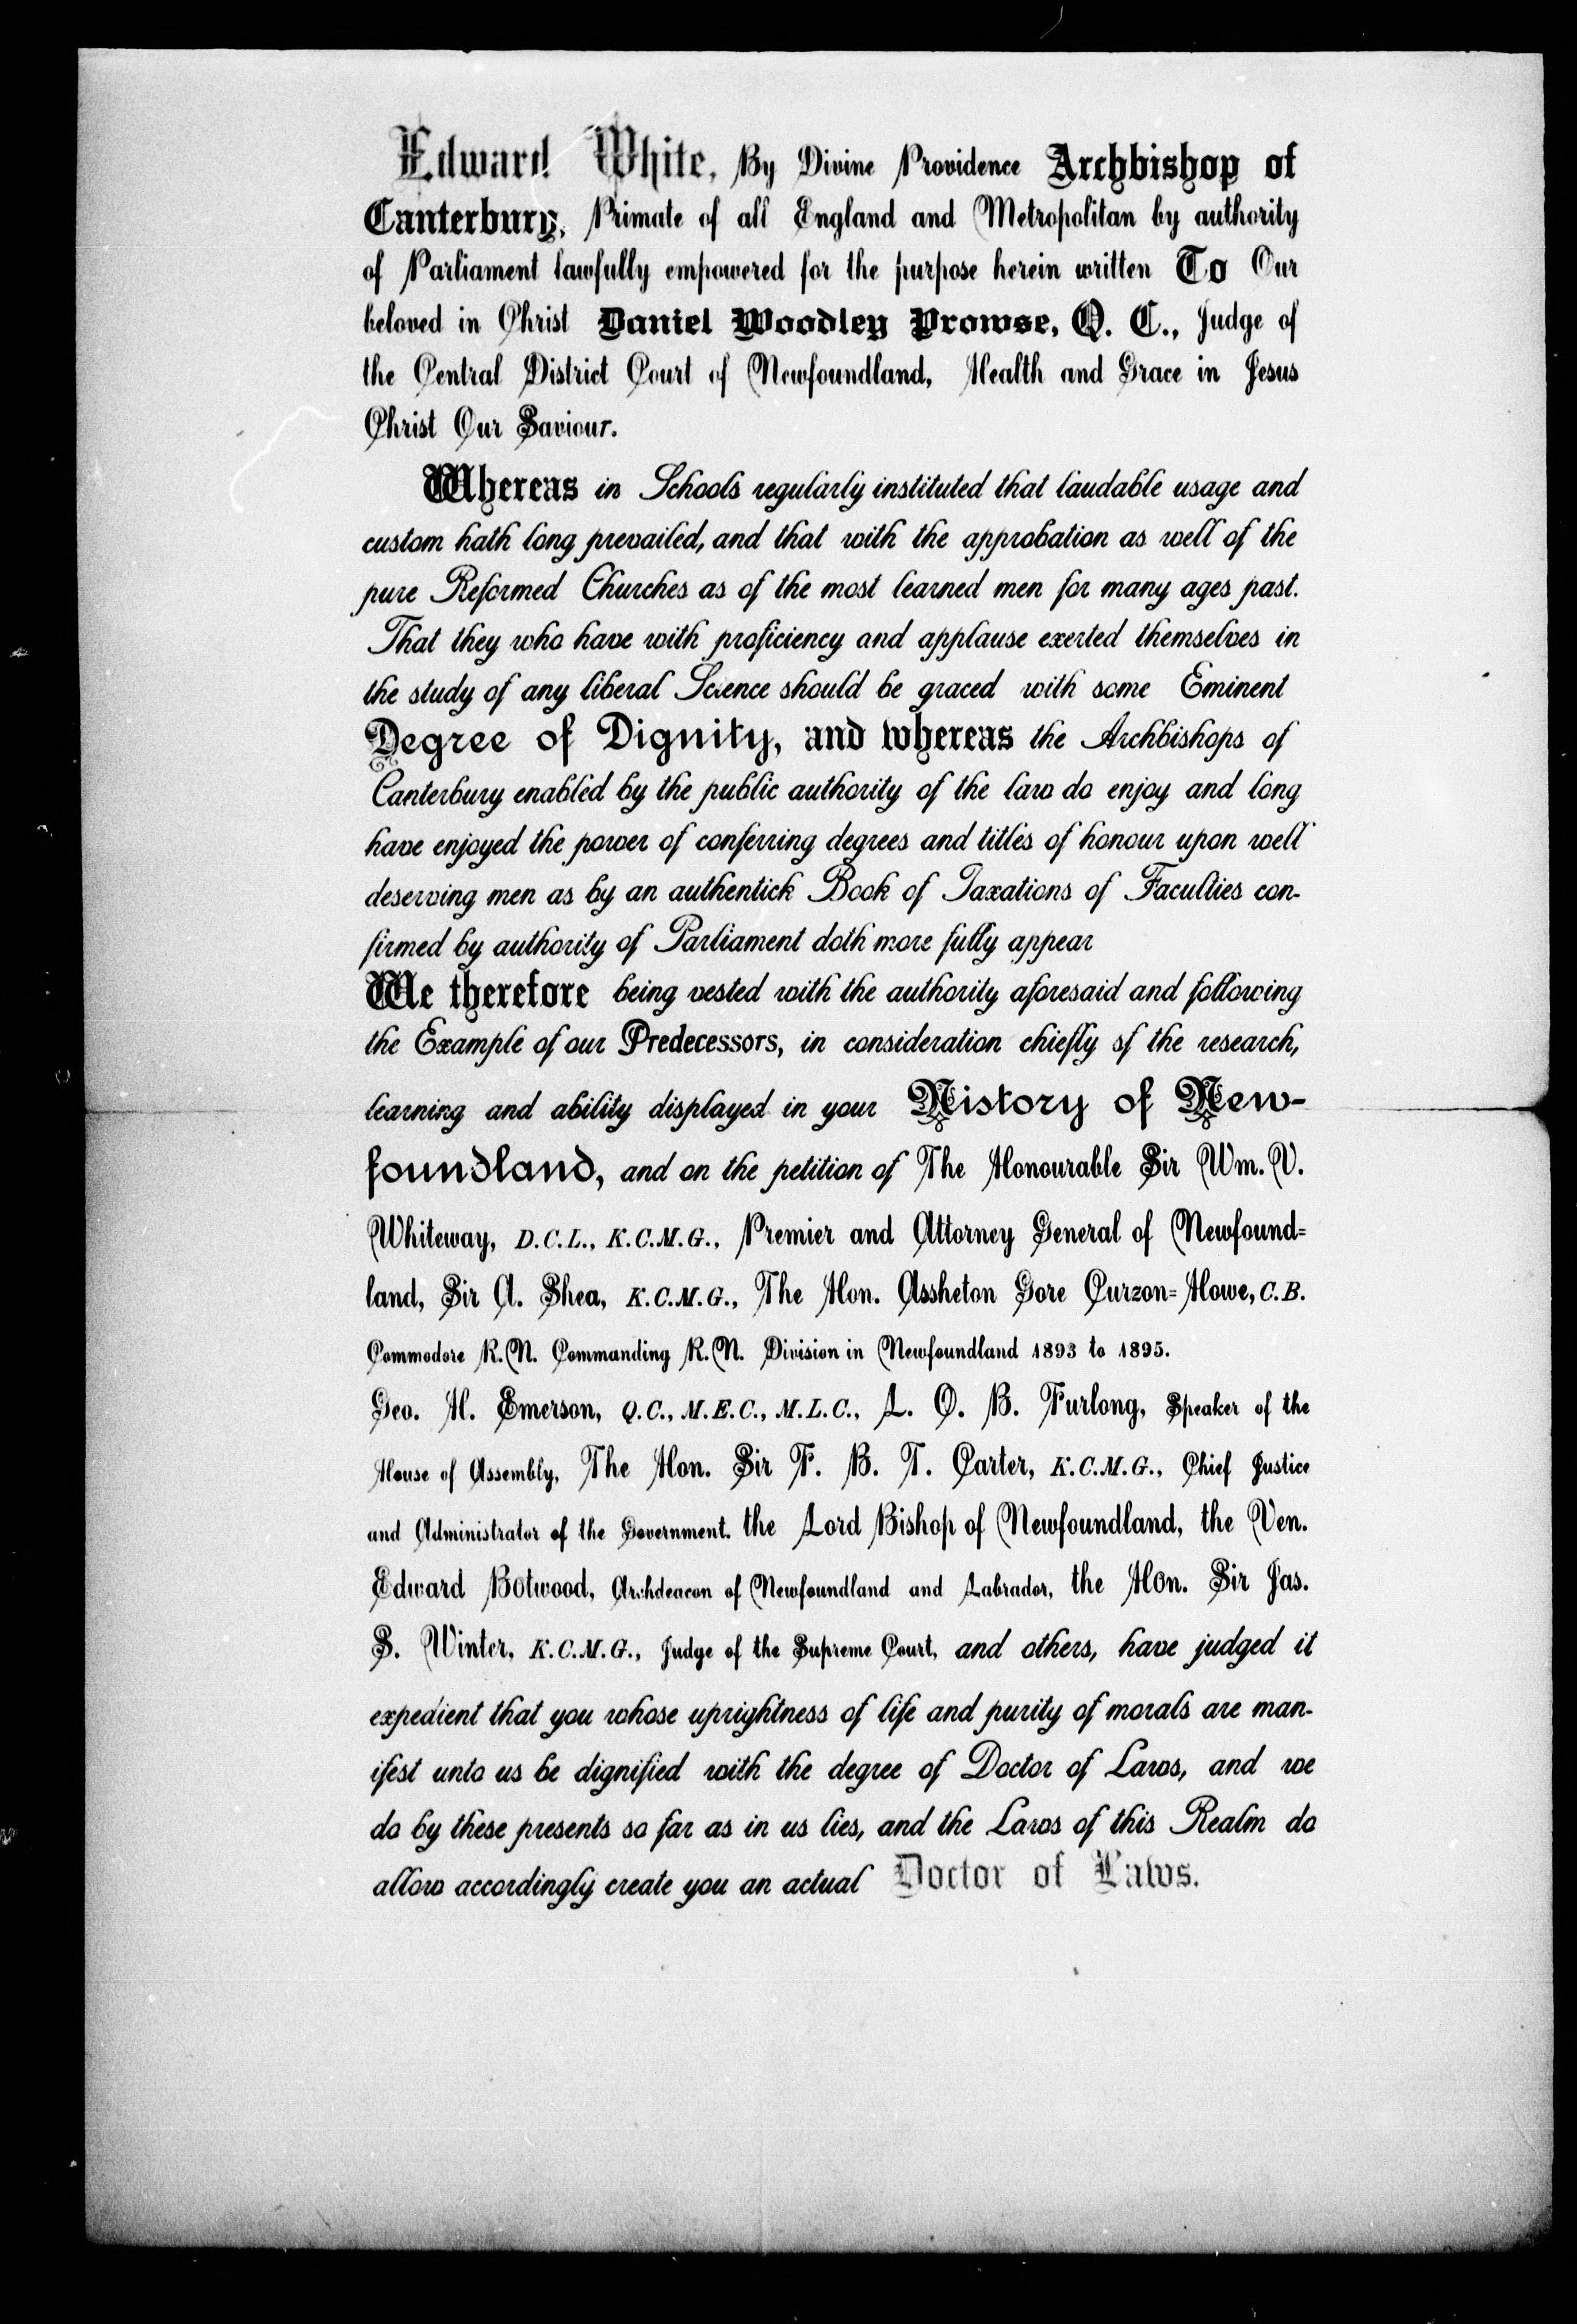 Edward White, By Divine Providence Archbishop of
Canterbury, Primate of all England and Metropolitan by authority
of Parliament lawfully empowered for the purpose herein written To Our
beloved in Christ Daniel Woodley Prowse, Q. C., Judge of
the Central District Court of Newfoundland, Health and Grace in Jesus
Christ Our Saviour.
Whereas in Schools regularly instituted that laudable usage and
custom hath long prevailed, and that with the approbation as well of the
pure Reformed Churches as of the most learned men for many ages past.
That they who have with proficiency and applause exerted themselves in
the study of any liberal Science should be graced with some Eminent
Degree of Dignity, and whereas the Archbishops of
Canterbury enabled by the public authority of the law do enjoy and long
have enjoyed the power of conferring degrees and titles of honour upon well
deserving men as by an authentick Book of Taxations of Faculties con-
firmed by authority of Parliament doth more fully appear
We therefore being vested with the authority aforesaid and following
the Example of our Predecessors, in consideration chiefly sf the research,
learning and ability displayed in your History of New-
foundland, and on the petition of The Honourable Sir Wm. V.
Whiteway, D.C.L., K.C.M.G., Premier and Attorney General of Newfound=
land, Sir A. Shea, K.C.M.G., The Hon. Assheton Gore Curzon=Howe, C.B.
Commodore R.N. Commanding R.N. Division in Newfoundland 1893 to 1895.
Geo. H. Emerson, Q.C., M.E.C., M.L.C., L. O. B. Furlong, Speaker of the
House of Assembly, The Hon. Sir F. B. T. Carter, K.C.M.G., Chief Justice
and Administrator of the Government. the Lord Bishop of Newfoundland, the Ven.
Edward Botwood, Archdeacon of Newfoundland and Labrador, the Hon. Sir Jas.
S. Winter, K.C.M.G., Judge of the Supreme Court, and others, have judged it
expedient that you whose uprightness of life and purity of morals are man-
ifest unto us be dignified with the degree of Doctor of Laws, and we
do by these presents so far as in us lies, and the Laws of this Realm do
allow accordingly create you an actual Doctor of Laws.